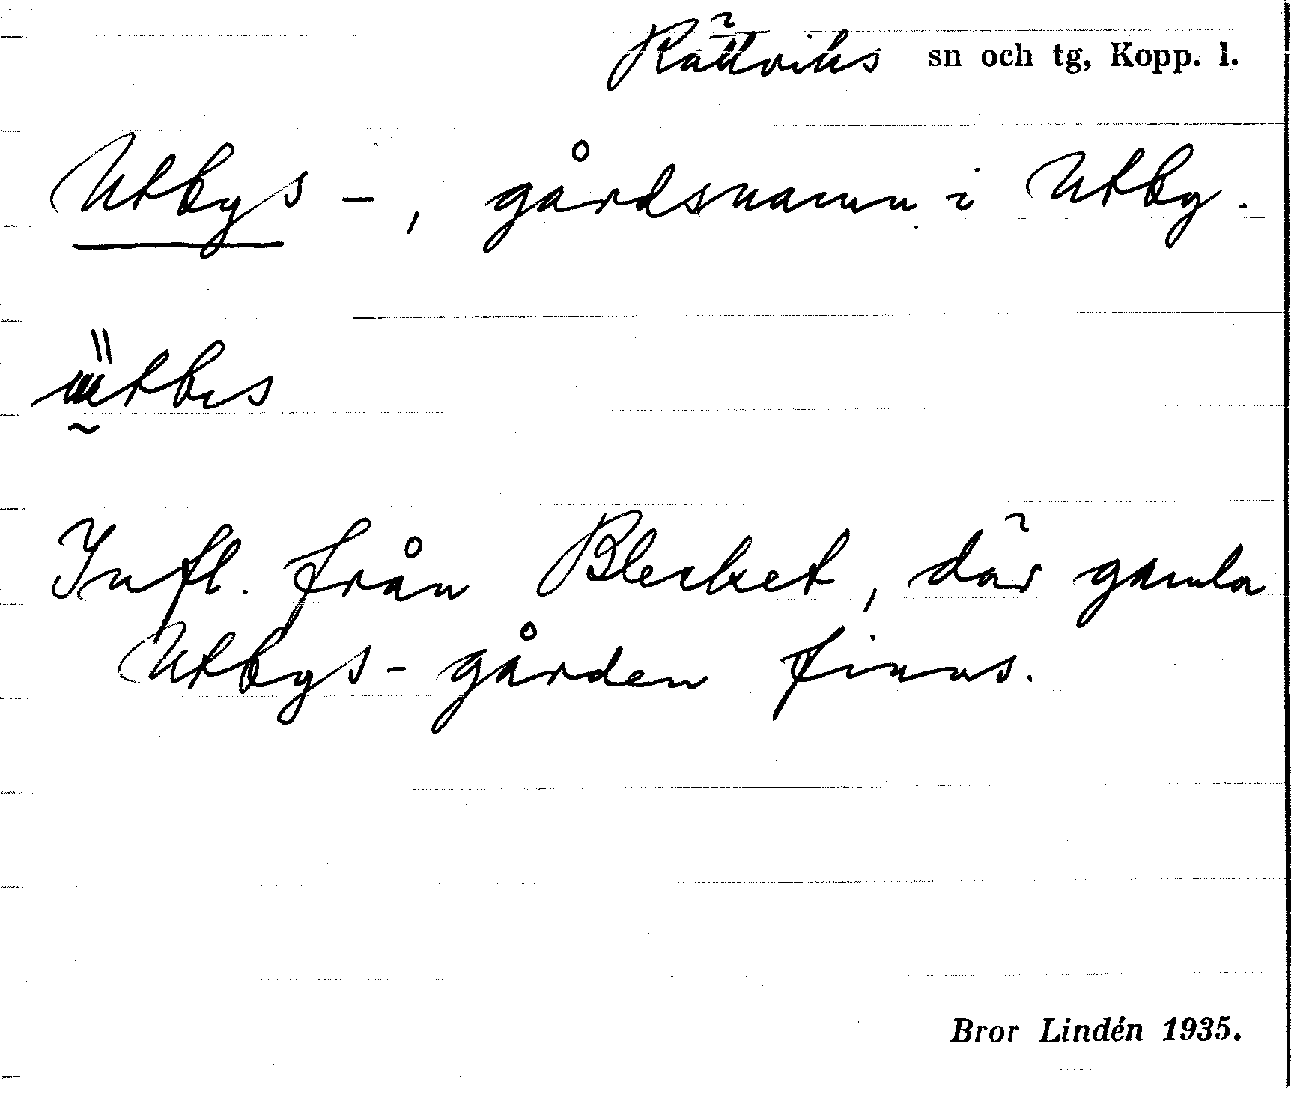 Rättviks sn och tg, Kopp. l.
Utbys –, gårdsnamn i Utby.
ütbıs
Infl. från Blecket, där gamla
Utbys-gården finns.
Bror Lindén 1935.